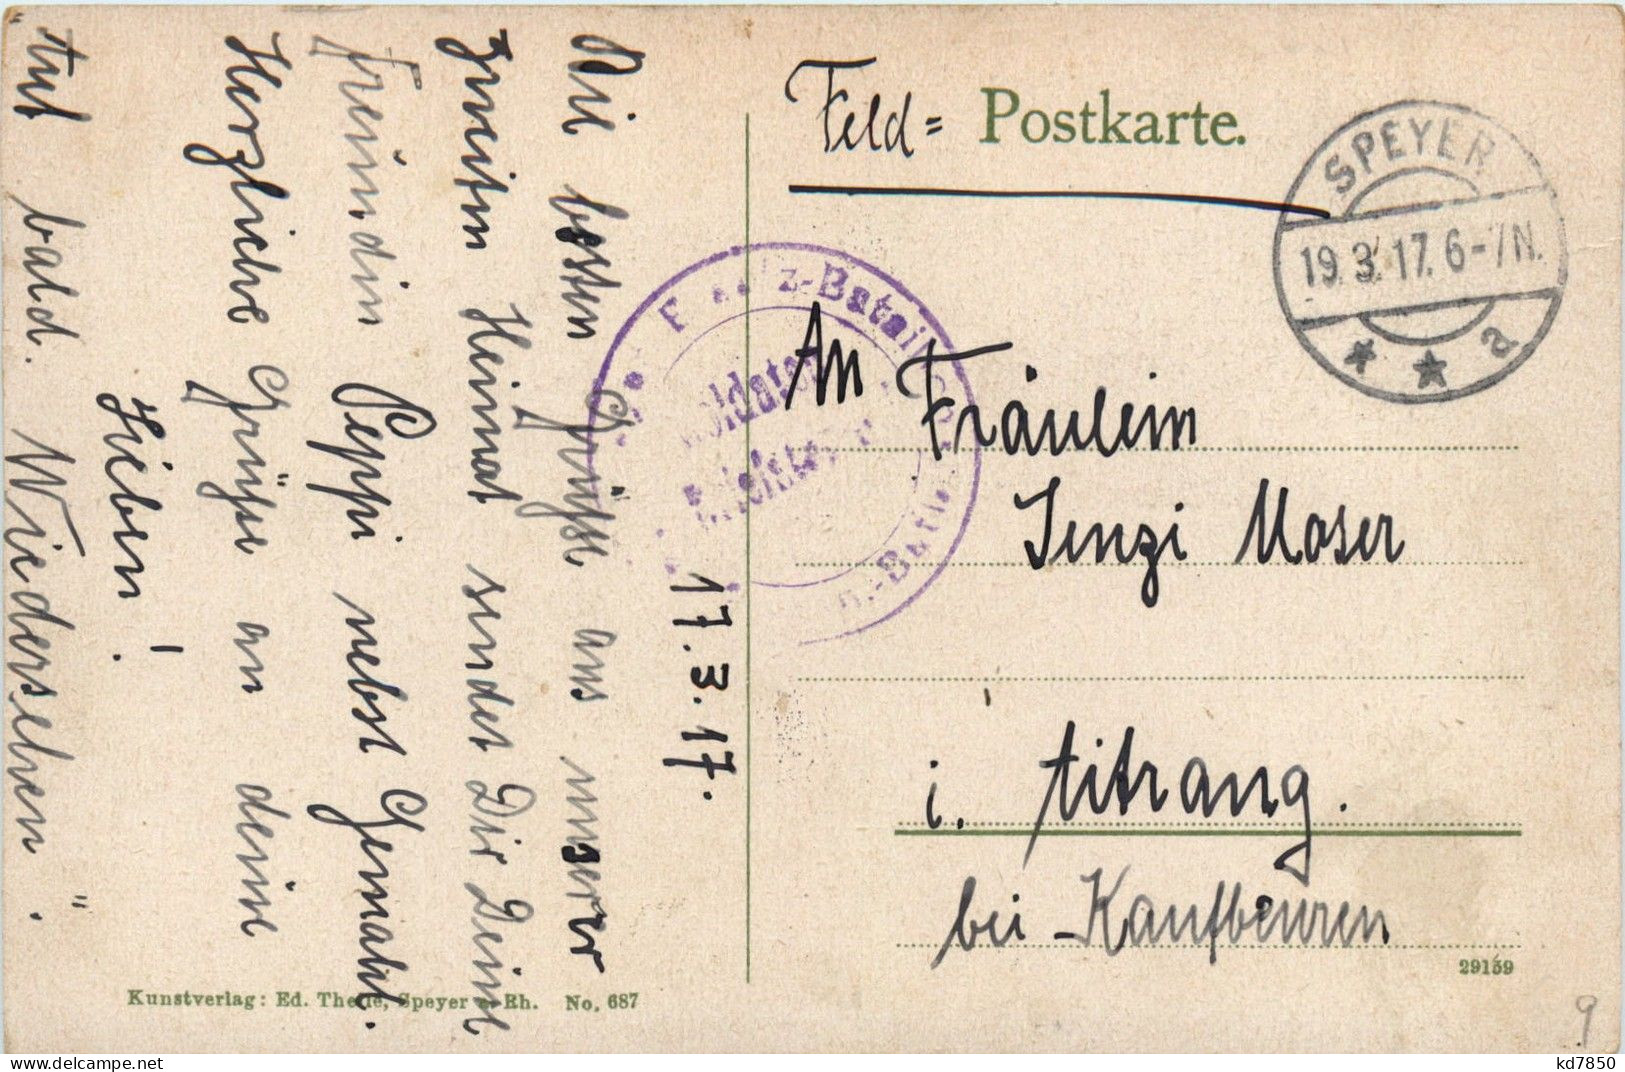 Feld= Postkarte.
SPEYER
19.3.17. 6-7N.
* * a
An
Fräulein
Senzi Moser
i. Aitrang.
bei Kaufbeuren
29159
17.3.17.
Die besten Grüsse aus unserer
zweiten Heimat sendet Dir Deine
Freundin Peppi nebst Gemahl.
Herzliche Grüße an deine
Lieben!
"Auf bald. Wiedersehen".
Kunstverlag: Ed. Theile, Speyer a. Rh. No. 687
9
kd7850